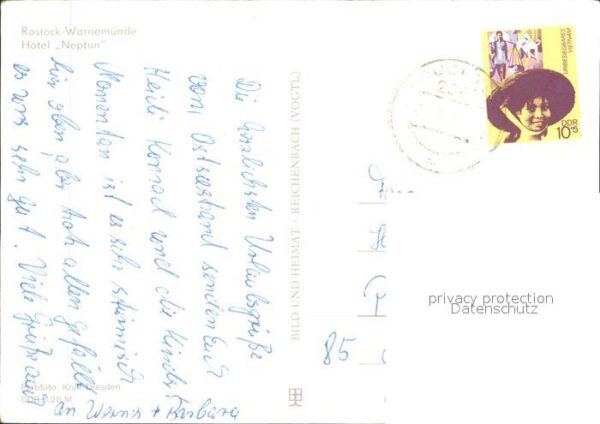 Rostock-Warnemünde
Hotel „Neptun"
Die herzlichsten Urlaubsgrüße
vom Ostseestrand senden Euch
Heidi Konrad und die Kinder!
Momentan ist es sehr stürmisch
hier oben, aber trotz allem gefällt
es uns sehr gut. Viele Grüße auch
an Werner + Barbara
Farbfoto: Kruse, Dresden
DDR 0,20 M
BILD UND HEIMAT · REICHENBACH (VOGTL)
UNBESIEGBARES
VIETNAM
DDR
10+5
85
privacy protection
Datenschutz